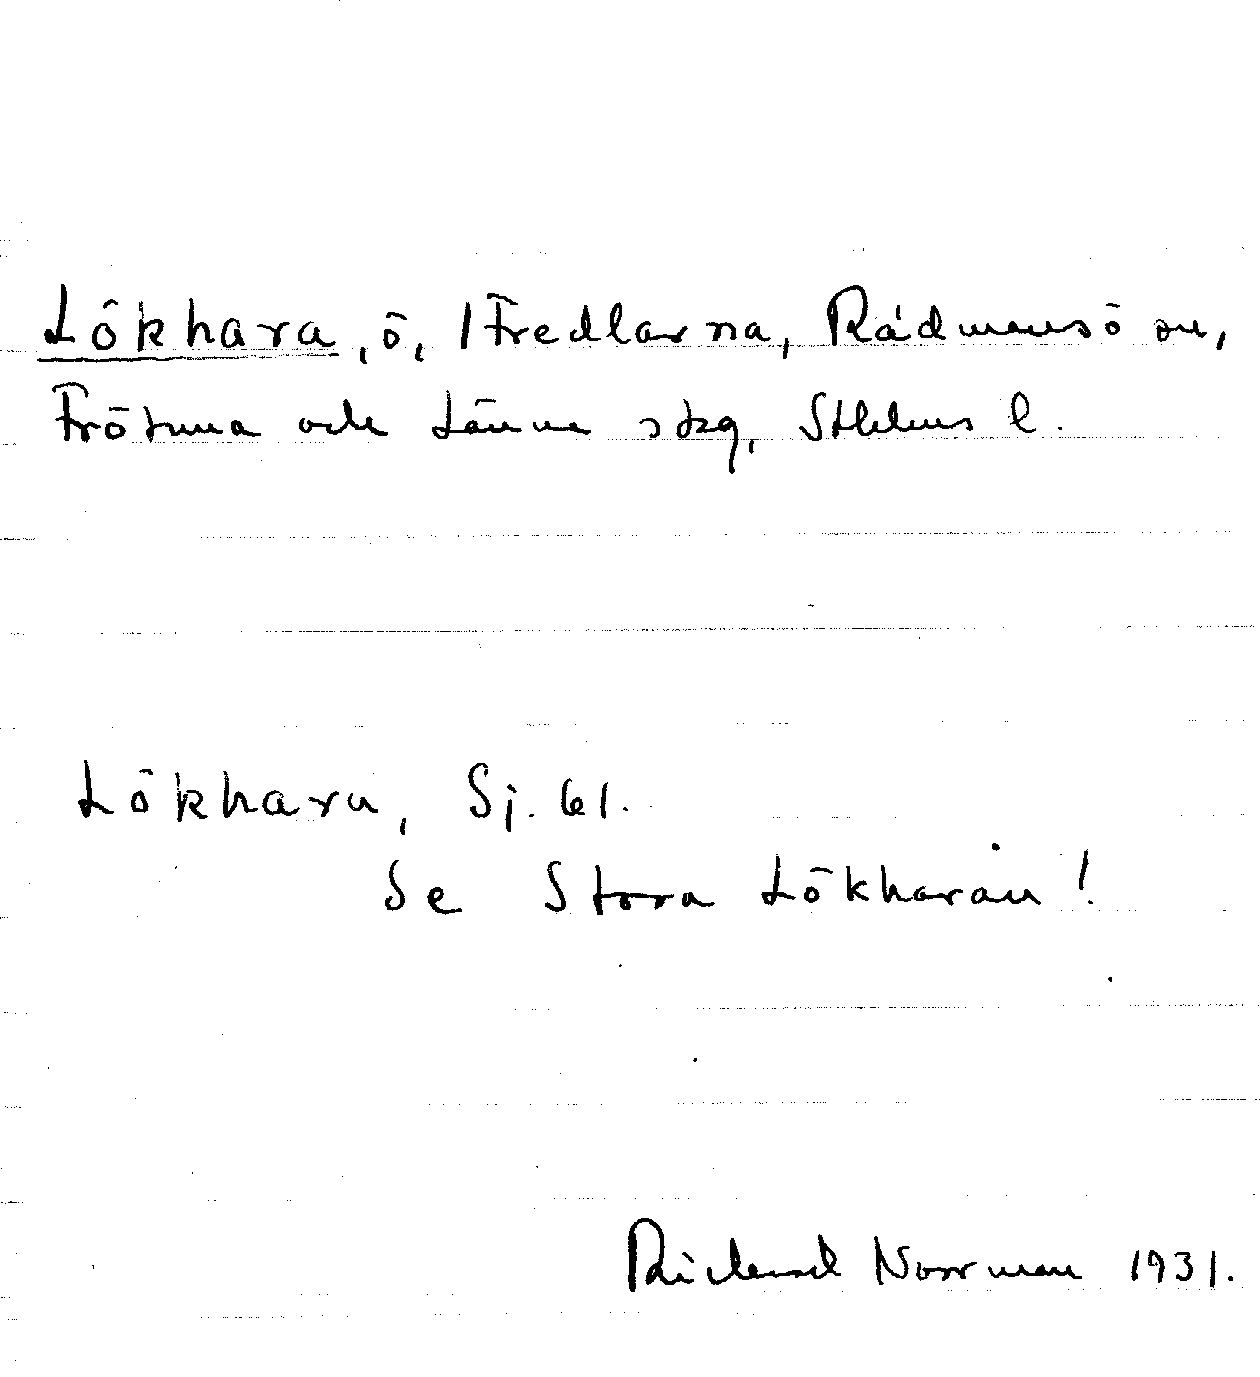 Lökhara, ö, /Fredlarna, Rådmansö sn,
Frötuna och Länna skg, Sthlms l.
Lökhara, Sj. 61.
Se Stora Lökharan!
Richard Norrman 1931.